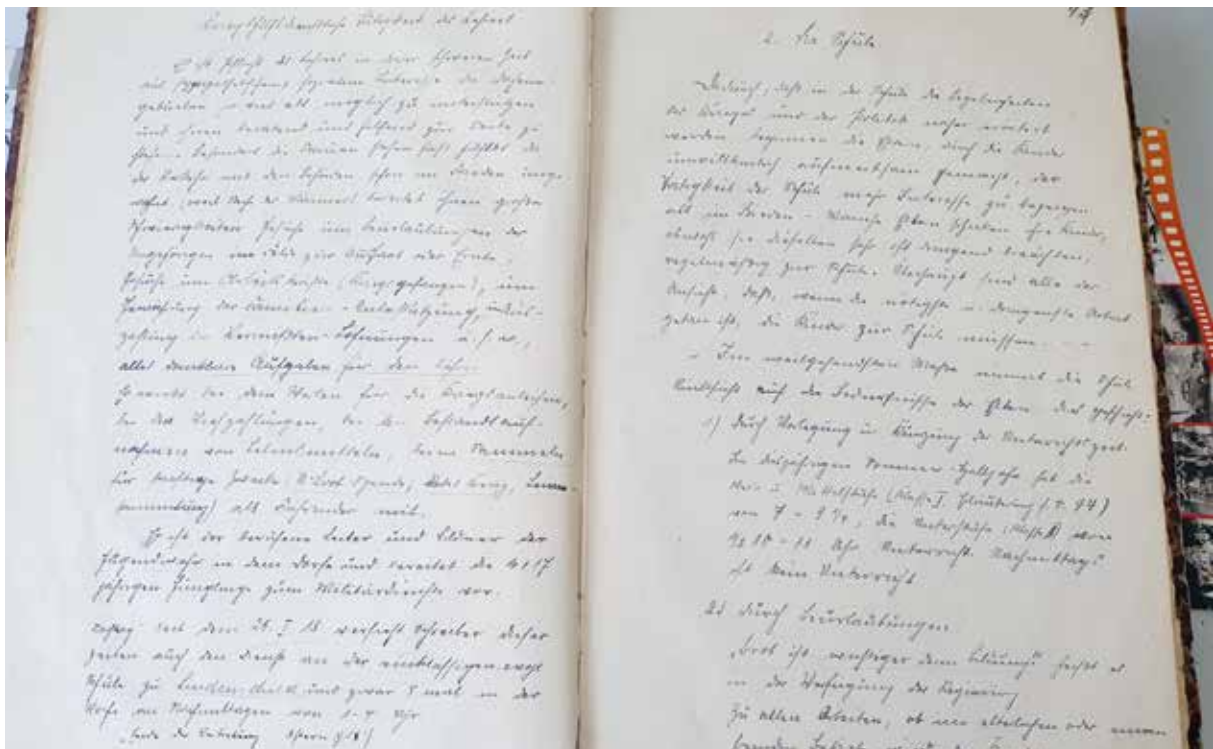 Kriegshilfsdienstliche Tätigkeit des Lehrers
Es ist Pflicht des Lehrers in dieser schweren Zeit
mit sozialem Interesse die Daheim-
gebliebenen so viel als möglich zu unterstützen
und ihnen beratend und helfend zur Seite zu
stehen. Besonders die Frauen stehen sehr hilflos da
der Verkehr mit den Behörden schon im Frieden unge-
wohnt, weil Sache der Männer, bereitet ihnen große
Schwierigkeiten. Gesuche um Beurlaubungen der
Angehörigen zur Aussaat oder Ernte
Gesuche um Arbeitskräfte (Kriegsgefangene), um
Gewährung der Familien-Unterstützung,
zahlung der Löhnungen u.s.w.,
alles dankbare Aufgaben für den Lehrer
Er wirkt bei dem Werben für die Kriegsanleihen,
bei den Viehzählungen, bei den Bestandsauf-
nahmen von Lebensmitteln, beim Sammeln
für wohltätige Zwecke
sammlung) als mit.
Er ist der berufene Leiter und Bildner der
Jugendwehr in dem Dorfe und bereitet die 16 u 17
jährigen Jünglinge zum Militärdienste vor.
seit dem 26. I 18 versieht Schreiber dieser
Zeilen auch den Dienst an der einklassigen evgl
Schule zu und zwar 5 mal in der
Woche an Nachmittagen von 1-4 Uhr
(Ende der Vertretung Ostern 1918)
2. Die Schule.
Dadurch, daß in der Schule die Begebenheiten
des Krieges und der Politik näher erörtert
werden beginnen die Eltern, durch die Kinder
unwillkürlich aufmerksam gemacht, der
Tätigkeit der Schule mehr Interesse zu bezeigen
als im Frieden. - Manche Eltern schicken ihre Kinder,
obwohl sie dieselben sehr oft dringend brauchten,
regelmäßig zur Schule. Überhaupt sind alle der
Ansicht, daß, wenn die nötigste u. dringendste Arbeit
getan ist, die Kinder zur Schule müssen. -
Im weitgehendsten Maße nimmt die Schule
Rücksicht auf die Bedürfnisse der Eltern. Dies geschieht:
1) durch Verlegung u. Kürzung der Unterrichtszeit.
Im diesjährigen Sommer-Halbjahr hat die
Ober- u. Mittelstufe (Klasse I 94)
von 7 - 9 1/2, die Unterstufe (Klasse II) von
1/2 10 - 11 Uhr Unterricht. Nachmittags
ist kein Unterricht
2) durch Beurlaubungen.
„Brot ist wichtiger denn Bildung" heißt es
in der Verfügung der Regierung
Zu allen Arbeiten, ob im elterlichen oder einem
fremden Betrieb